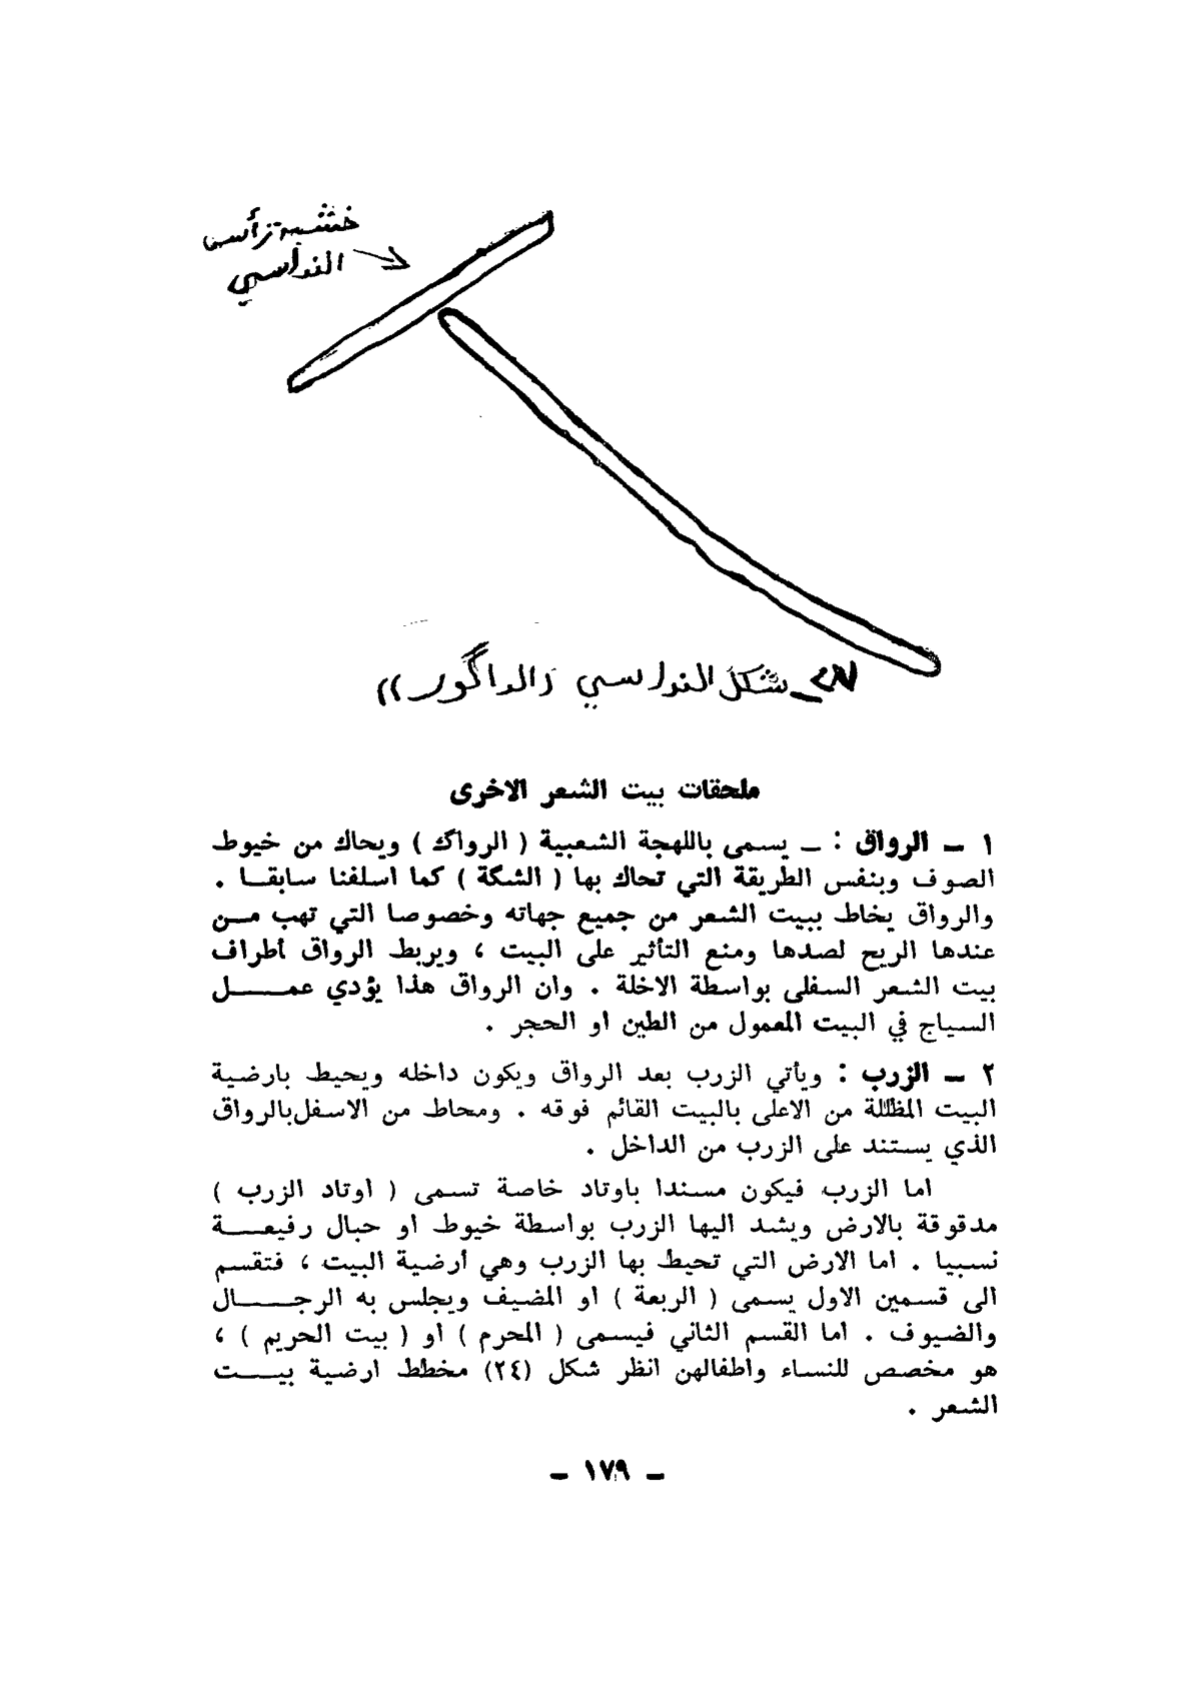 خشبة رأس
النواسي
شكل النواسي (( الداگور ))
ملحقات بيت الشعر الاخرى
١ – الرواق : – يسمى باللهجة الشعبية ( الرواگ ) ويحاك من خيوط
الصوف وبنفس الطريقة التي تحاك بها ( الشگة ) كما اسلفنا سابقـا .
والرواق يخاط ببيت الشعر من جميع جهاته وخصوصا التي تهب مــن
عندها الريح لصدها ومنع التأثير على البيت ، ويربط الرواق أطراف
بيت الشعر السفلى بواسطة الاخلة . وان الرواق هذا يؤدي عمـــــل
السياج في البيت المعمول من الطين او الحجر .
٢ – الزرب : ويأتي الزرب بعد الرواق ويكون داخله ويحيط بارضية
البيت المظللة من الاعلى بالبيت القائم فوقه . ومحاط من الاسفل بالرواق
الذي يستند على الزرب من الداخل .
اما الزرب فيكون مسندا باوتاد خاصة تسمى ( اوتاد الزرب )
مدقوقة بالارض ويشد اليها الزرب بواسطة خيوط او حبال رفيعـــة
نسبيا . اما الارض التي تحيط بها الزرب وهي أرضية البيت ، فتقسم
الى قسمين الاول يسمى ( الربعة ) او المضيف ويجلس به الرجـــــال
والضيوف . اما القسم الثاني فيسمى ( المحرم ) أو ( بيت الحريم ) ،
هو مخصص للنساء واطفالهن انظر شكل (٢٤) مخطط ارضية بيــــت
الشعر .
– ١٧٩ –